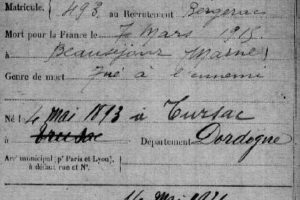 Matricule. 498 au Recrutement Bergerac
Mort pour la France le 7 Mars 1915
à Beauséjour Marne
Genre de mort Tué à l'ennemi
Né le 4 Mai 1893 à Tursac
Département Dordogne
Arrt municipal (pr Paris et Lyon),
à défaut rue et No.